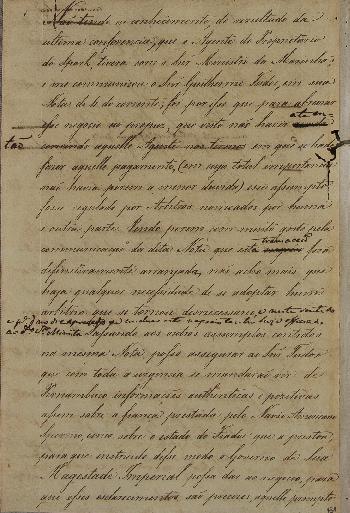 Não tendo o conhecimento do resultado da
ultima conferencia, que o Agente do Proprietario
do Spark, tivera com o Snr Ministro da Marinha,
e me communicou o Snr Guilherme Tudor, em sua
Nota de 6 do corrente; foi por isso que para abreviar
esse negocio eu suppuz, que visto não haver
tas
concordado aquelle Agente nos termos em que se
fazer aquelle pagamento, (em cuja total importancia
não havia porem a menor duvida) este assumpto
fosse regulado por Arbitros nomeados por huma
e outra parte. Vendo porem com muito gosto pela
communicação da dita Nota que esta transacção fora
definitivamente arranjada, não acho mais que
haja qualquer necessidade de se adoptar hum
arbitrio que se tornou desnecessario,
Passando aos outros assumptos contidos
na mesma Nota, posso assegurar ao Snr Tudor
que com toda a urgencia se mandarão vir de
Pernambuco informações authenticas e positivas
assim sobre a fiança prestada pelo Navio Americano
como sobre o estado do Fiador que a prestou,
para que instruido desse modo o Governo de Sua
Magestade Imperial possa dar ao negocio, para
que esses esclarecimentos são precisos, aquelle